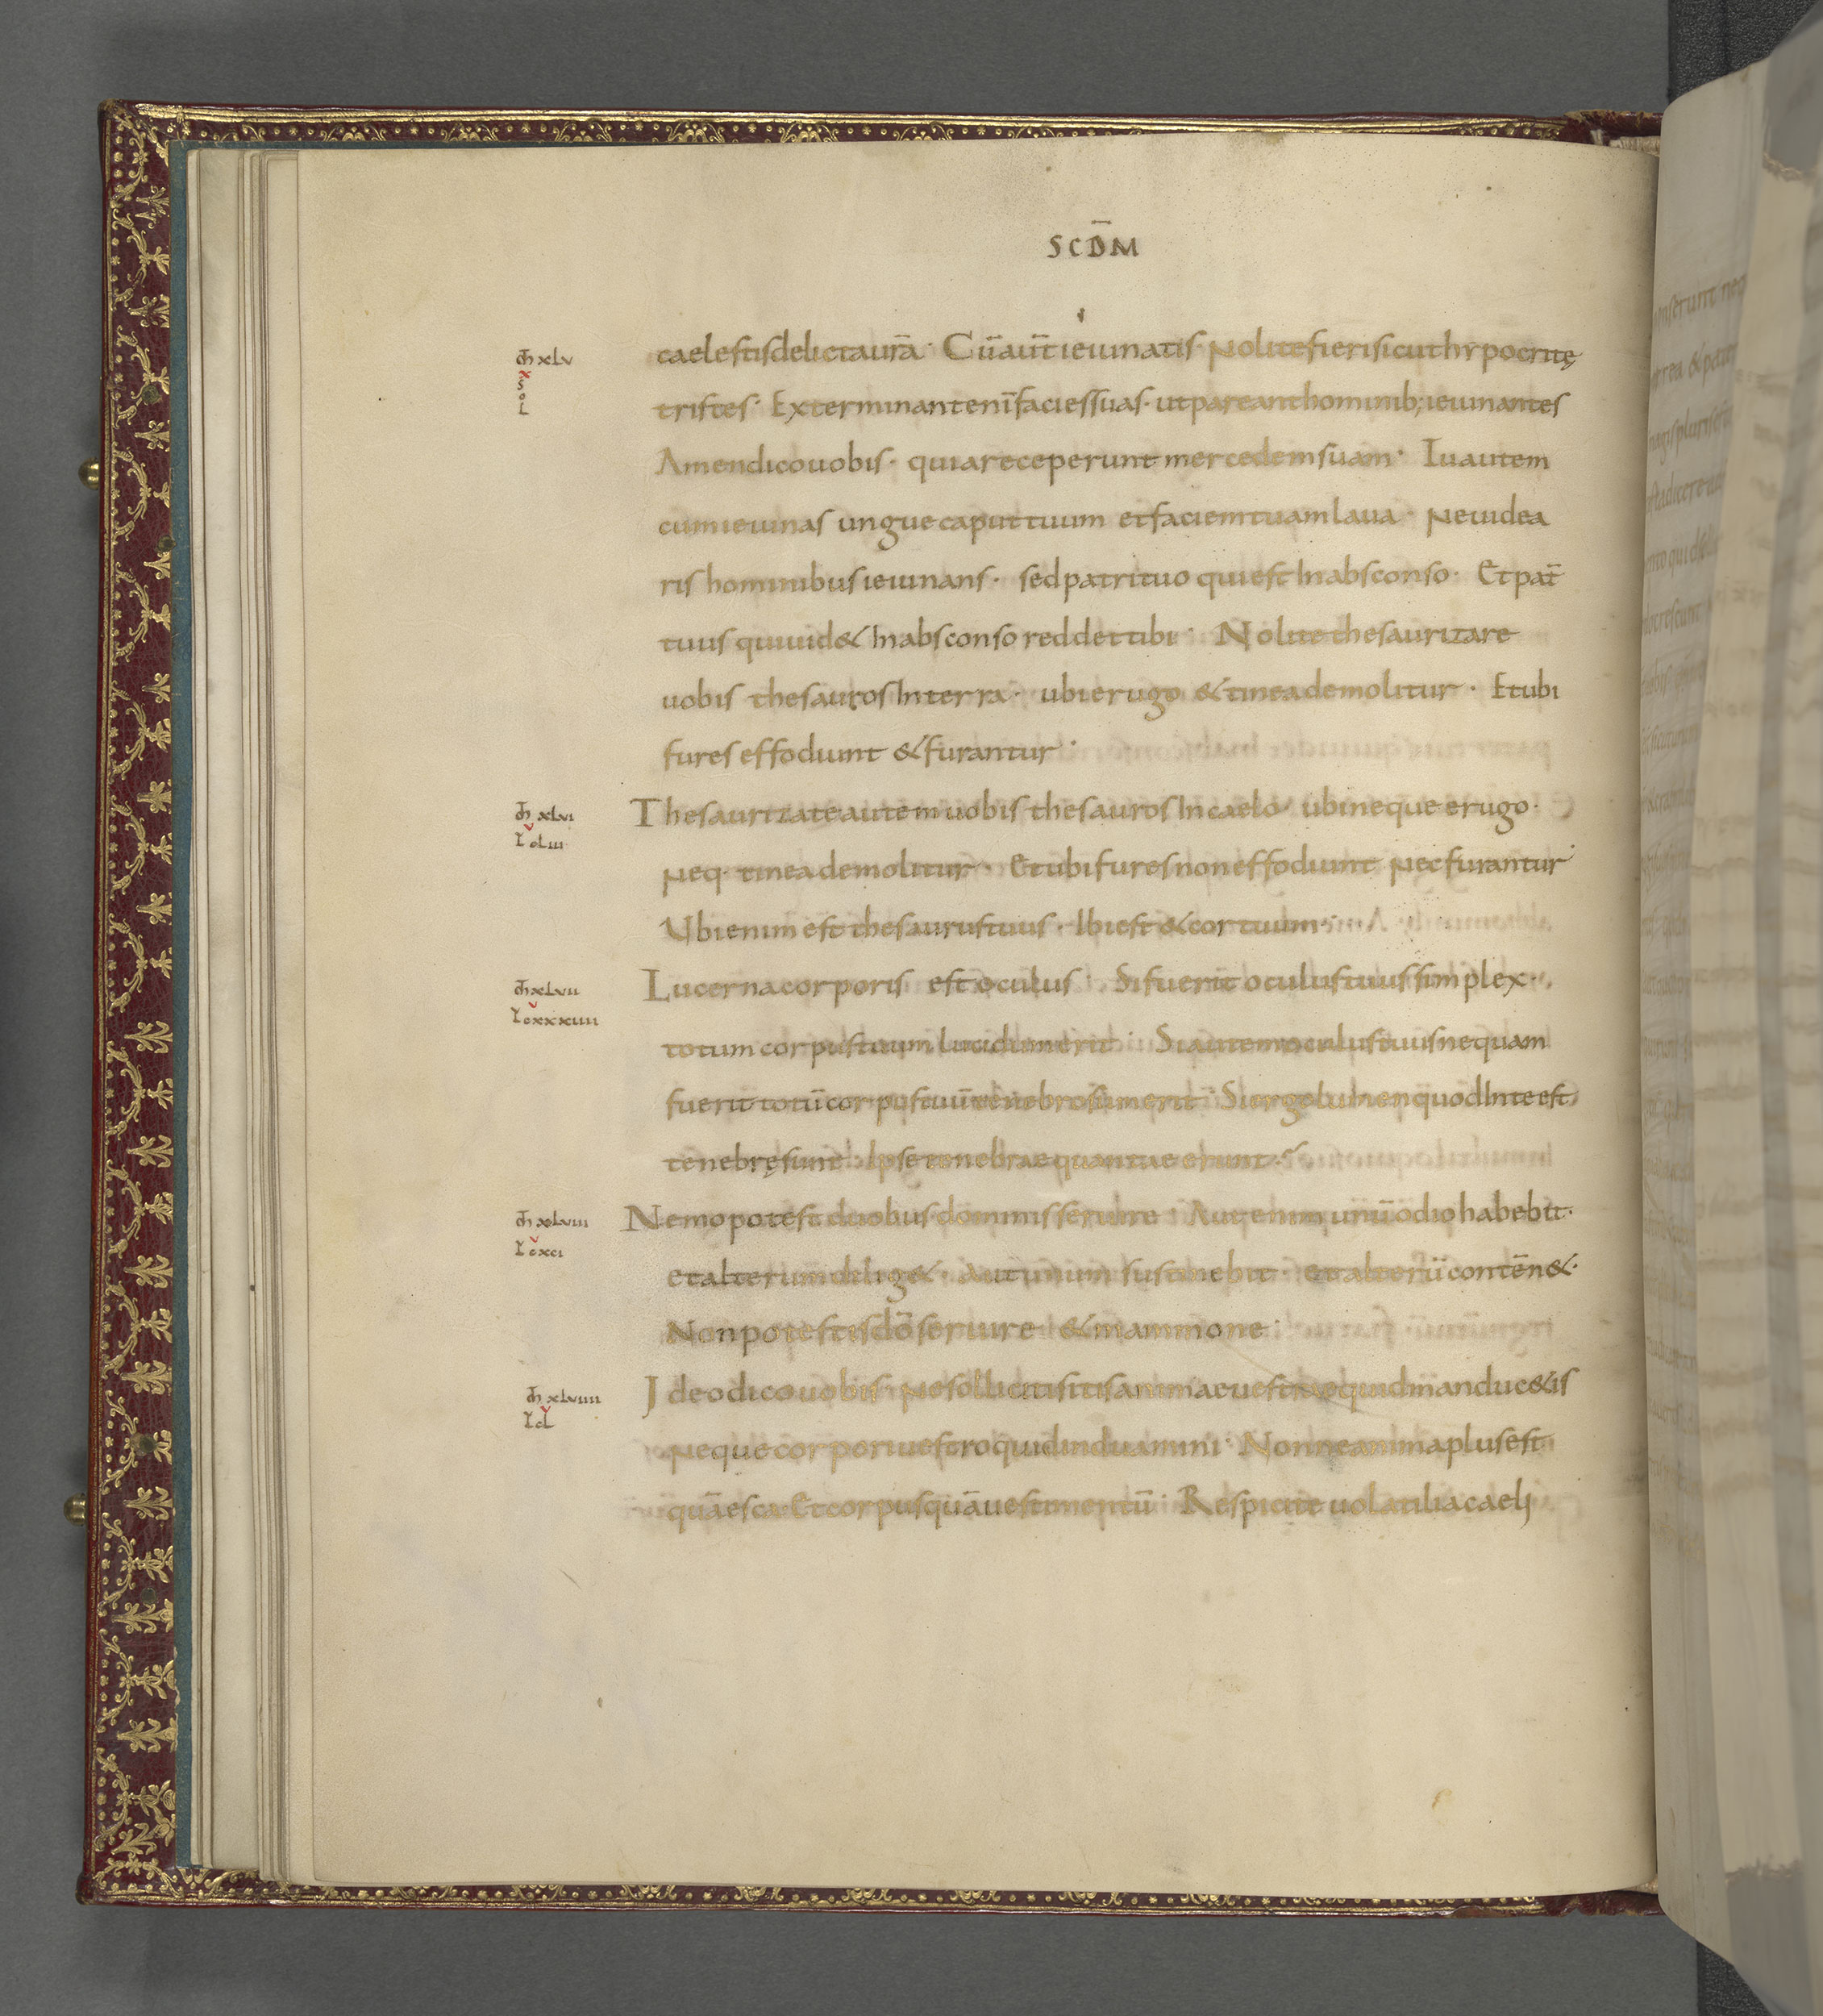 SCD̄M
caelestis delicta uṝa · Cū aūt ieiunatis · Nolite fieri sicut hypocritę
m̄h xlv
x
s
o
L
tristes · Exterminant eni̅ facies suas · ut pareant hominib; ieiunantes
Amen dico uobis · quia receperunt mercedem suam · Tu autem
cum ieiunas ungue caput tuum et faciem tuam laua · Ne uidea
ris hominibus ieiunans · sed patri tuo qui est In absconso · Et pat̄
tuus qui uid& In absconso reddet tibi · Nolite thesaurizare
uobis thesauros In terra · ubi erugo & tinea demolitur · Et ubi
fures effodiunt & furantur ·
m̄h xlvi
Thesaurizate autem uobis thesauros In caelo ubi neque erugo ·
Neq· tinea demolitur · Et ubi fures non effodiunt Nec furantur ·
Ubi enim est thesaurus tuus · Ibi est & cor tuum ·
m̄h xlvii
Lucerna corporis est oculus · Si fuerit oculus tuus simplex ·
totum corpus tuum lucidum erit · Si autem oculus tuus nequam
fuerit totū corpus tuū tenebrosum erit · Si ergo lumen quod In te est
tenebrę sunt Ipse tenebrae quantae erunt ·
m̄h xlviii
Nemo potest duobus dominis seruire · Aut enim unū odio habebit ·
et alterum dilig& · Aut unum sustinebit · et alterū contēn& ·
Non potestis dō seruire & mammone ·
m̄h xlviiii
Ideo dico uobis · Ne solliciti sitis animae uestrae quid manduc&is
Neque corpori uestro quid induamini · Nonne anima plus est
quā esca · Et corpus quā uestimentū · Respicite uolatilia caeli